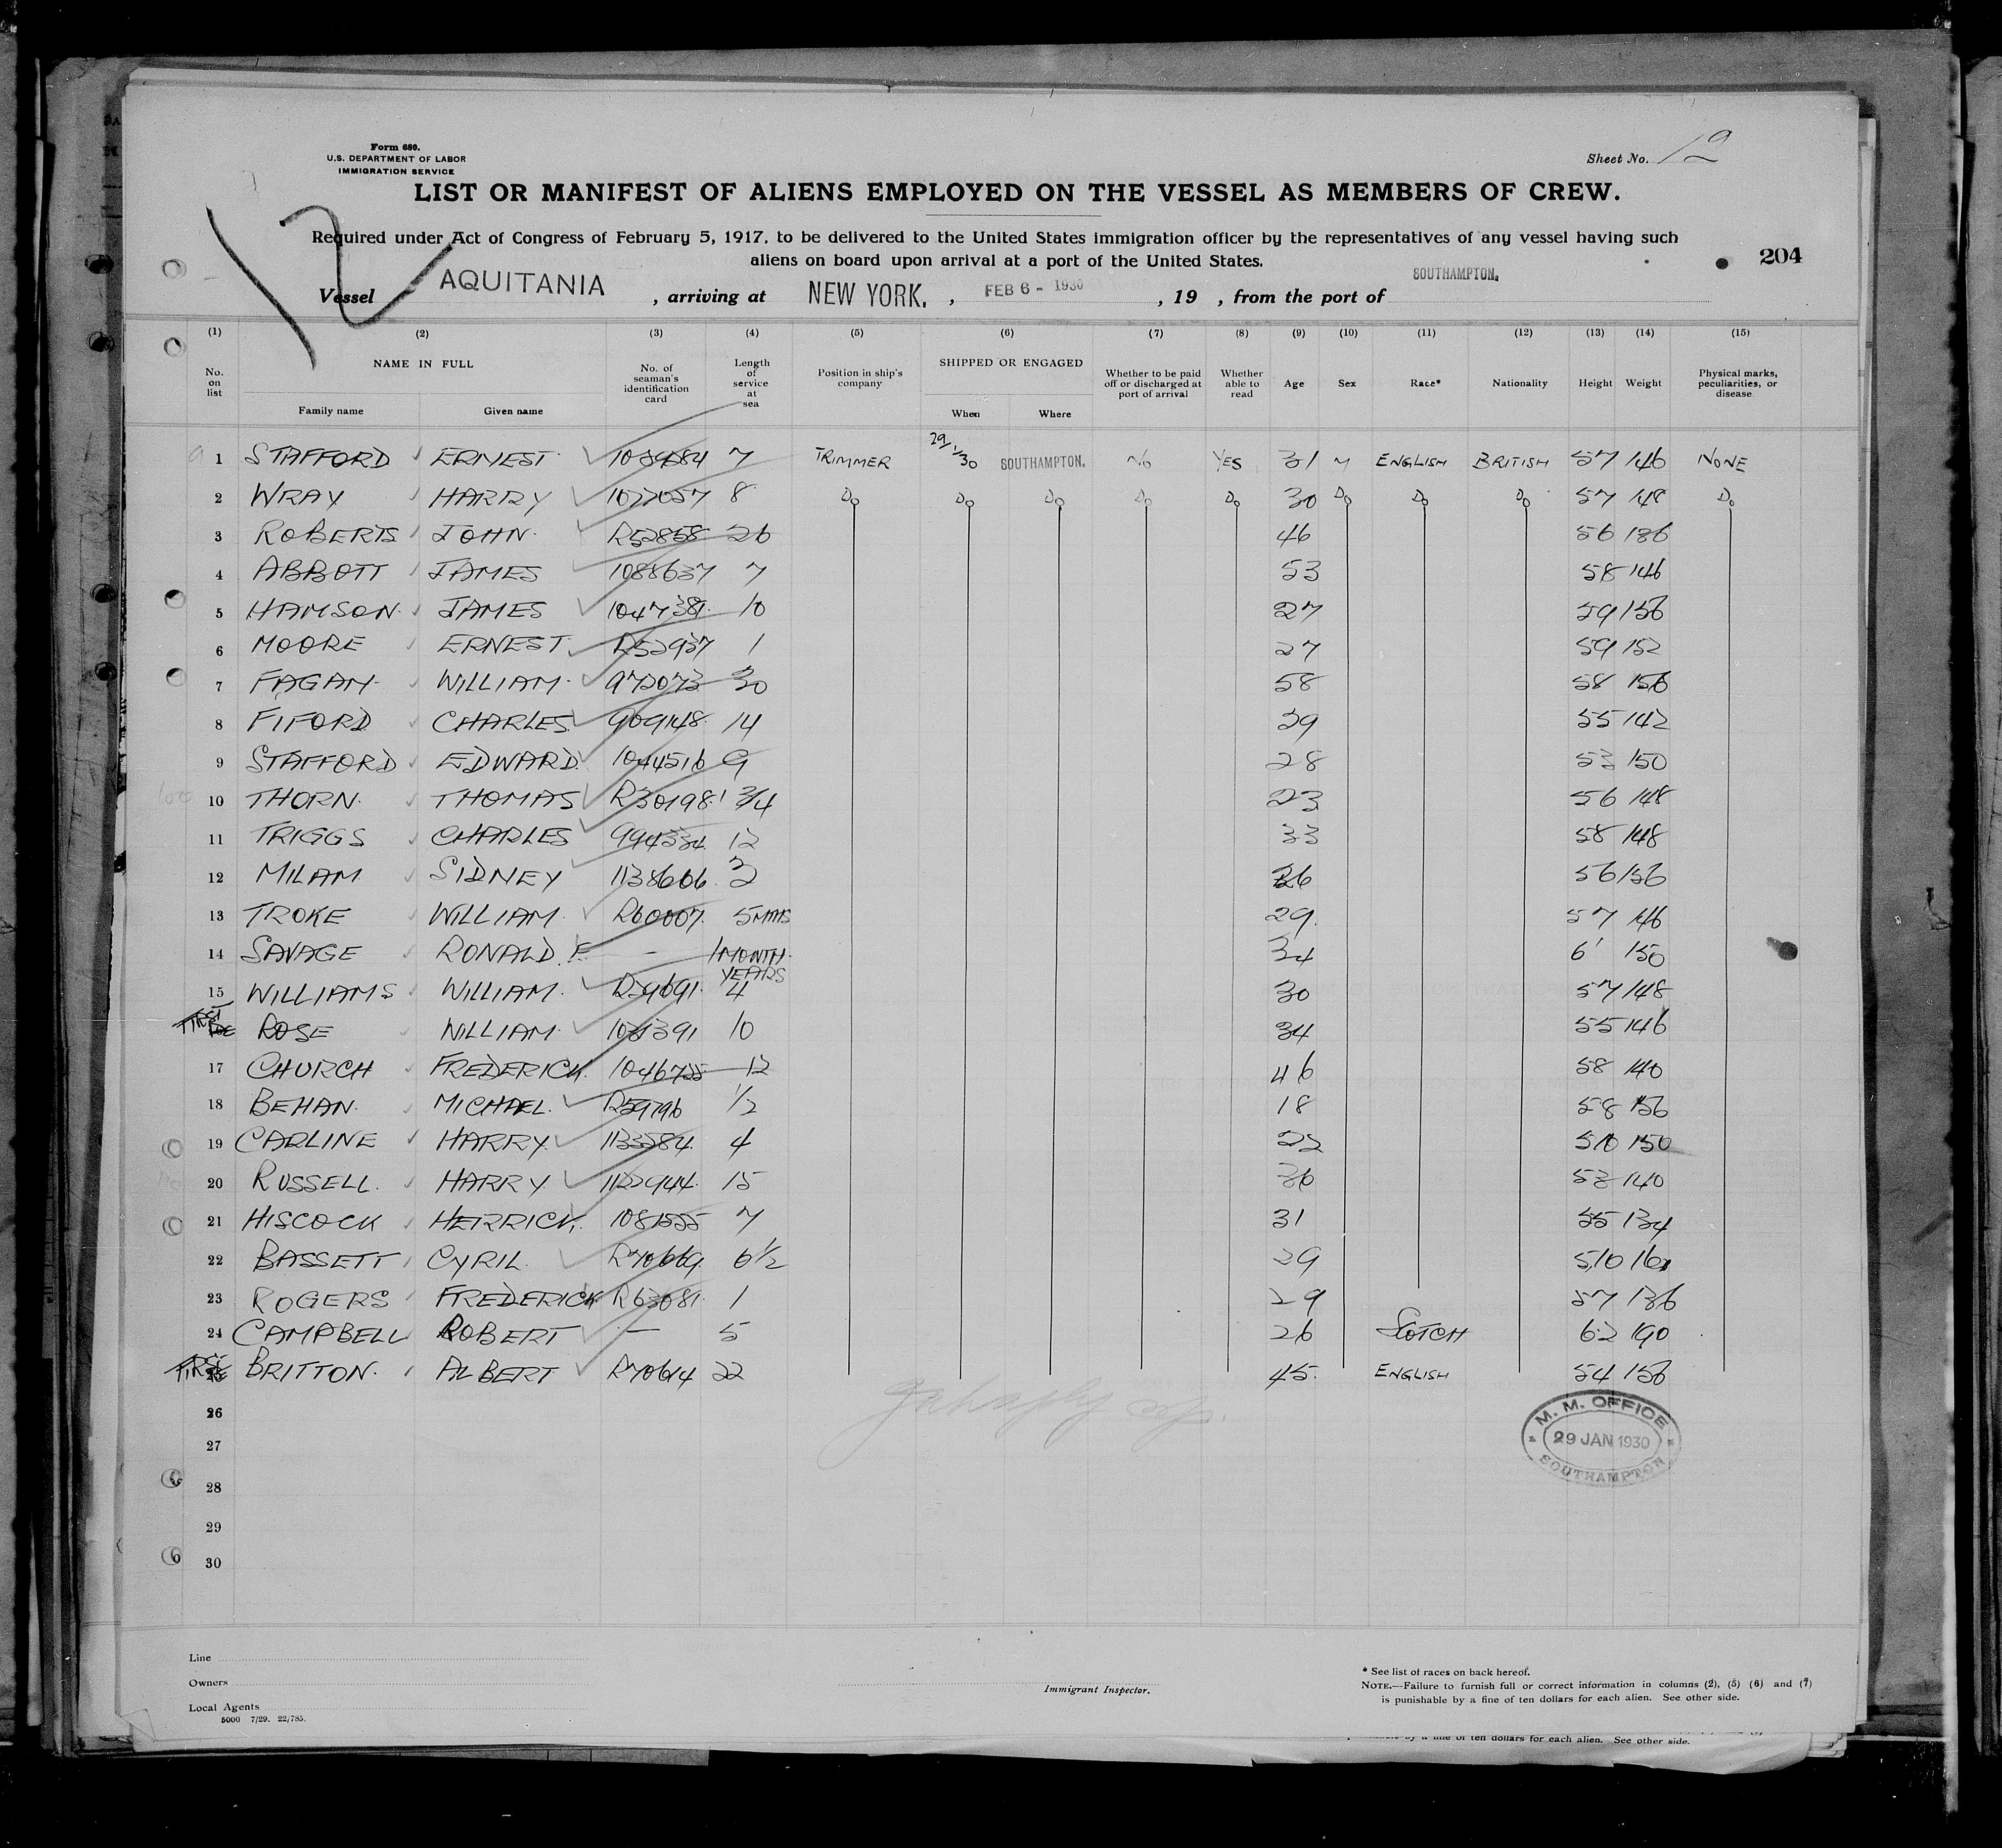 Form 680.
U.S. DEPARTMENT OF LABOR
IMMIGRATION SERVICE
Sheet No. 12
LIST OR MANIFEST OF ALIENS EMPLOYED ON THE VESSEL AS MEMBERS OF CREW.
12
Required under Act of Congress of February 5, 1917, to be delivered to the United States immigration officer by the representatives of any vessel having such
aliens on board upon arrival at a port of the United States.
204
Vessel AQUITANIA , arriving at NEW YORK. , FEB 6 - 1930 , 19 , from the port of SOUTHAMPTON.
(1) (2) (3) (4) (5) (6) (7) (8) (9) (10) (11) (12) (13) (14) (15)
No. on list NAME IN FULL No. of seaman's identification card Length of service at sea Position in ship's company SHIPPED OR ENGAGED Whether to be paid off or discharged at port of arrival Whether able to read Age Sex Race* Nationality Height Weight Physical marks, peculiarities, or disease
Family name Given name When Where
1 STAFFORD ERNEST 7 TRIMMER 29/1/30 SOUTHAMPTON. No YES 31 M ENGLISH BRITISH 57 146 NONE
2 WRAY HARRY 1077057 8 Do Do Do Do Do 30 Do Do Do 57 148 Do
3 ROBERTS JOHN. R52858 26 46 56 136
4 ABBOTT JAMES 1088637 7 53 58 146
5 HAMSON. JAMES 104738 10 27 59 156
6 MOORE ERNEST. R52937 1 27 59 152
7 FAGAN. WILLIAM. 972073 30 58 58 156
8 FIFORD CHARLES. 909148. 14 29 55 142
9 STAFFORD EDWARD. 1044516 9 28 53 150
10 THORN. THOMAS R30198. 1 3/4 23 56 148
11 TRIGGS CHARLES 994334 12 33 58 148
12 MILAM SIDNEY 1138606. 3 26 56 156
13 TROKE WILLIAM. R60007. 5 MTHS 29. 57 146
14 SAVAGE RONALD. F. - 1 MONTH. 34 6' 150
15 WILLIAMS WILLIAM. R59691. YEARS 4 30 57 148
FIRE ROSE WILLIAM. 1031391 10 34 55 146
17 CHURCH FREDERICK. 1046725 12 46 58 140
18 BEHAN. MICHAEL. R59796 1/2 18 58 156
19 CARLINE HARRY. 1133584. 4 22 510 150
20 RUSSELL. HARRY 1122944. 15 36 53 140
21 HISCOCK HERRICK. 1081555 7 31 55 134
22 BASSETT CYRIL. R70669. 6 1/2 29 5,10
23 ROGERS FREDERICK R63081. 1 29 57 136
24 CAMPBELL ROBERT - 5 26 SCOTCH 6.2 190
25 BRITTON. ALBERT R70614 22 45. ENGLISH 54 156
26
27
28
29
30
M. M. OFFICE
29 JAN 1930
SOUTHAMPTON
Line
Owners
Local Agents
5000 7/29. 22/785.
Immigrant Inspector.
* See list of races on back hereof.
NOTE.—Failure to furnish full or correct information in columns (2), (5) (6) and (7)
is punishable by a fine of ten dollars for each alien. See other side.
of ten dollars for each alien. See other side.